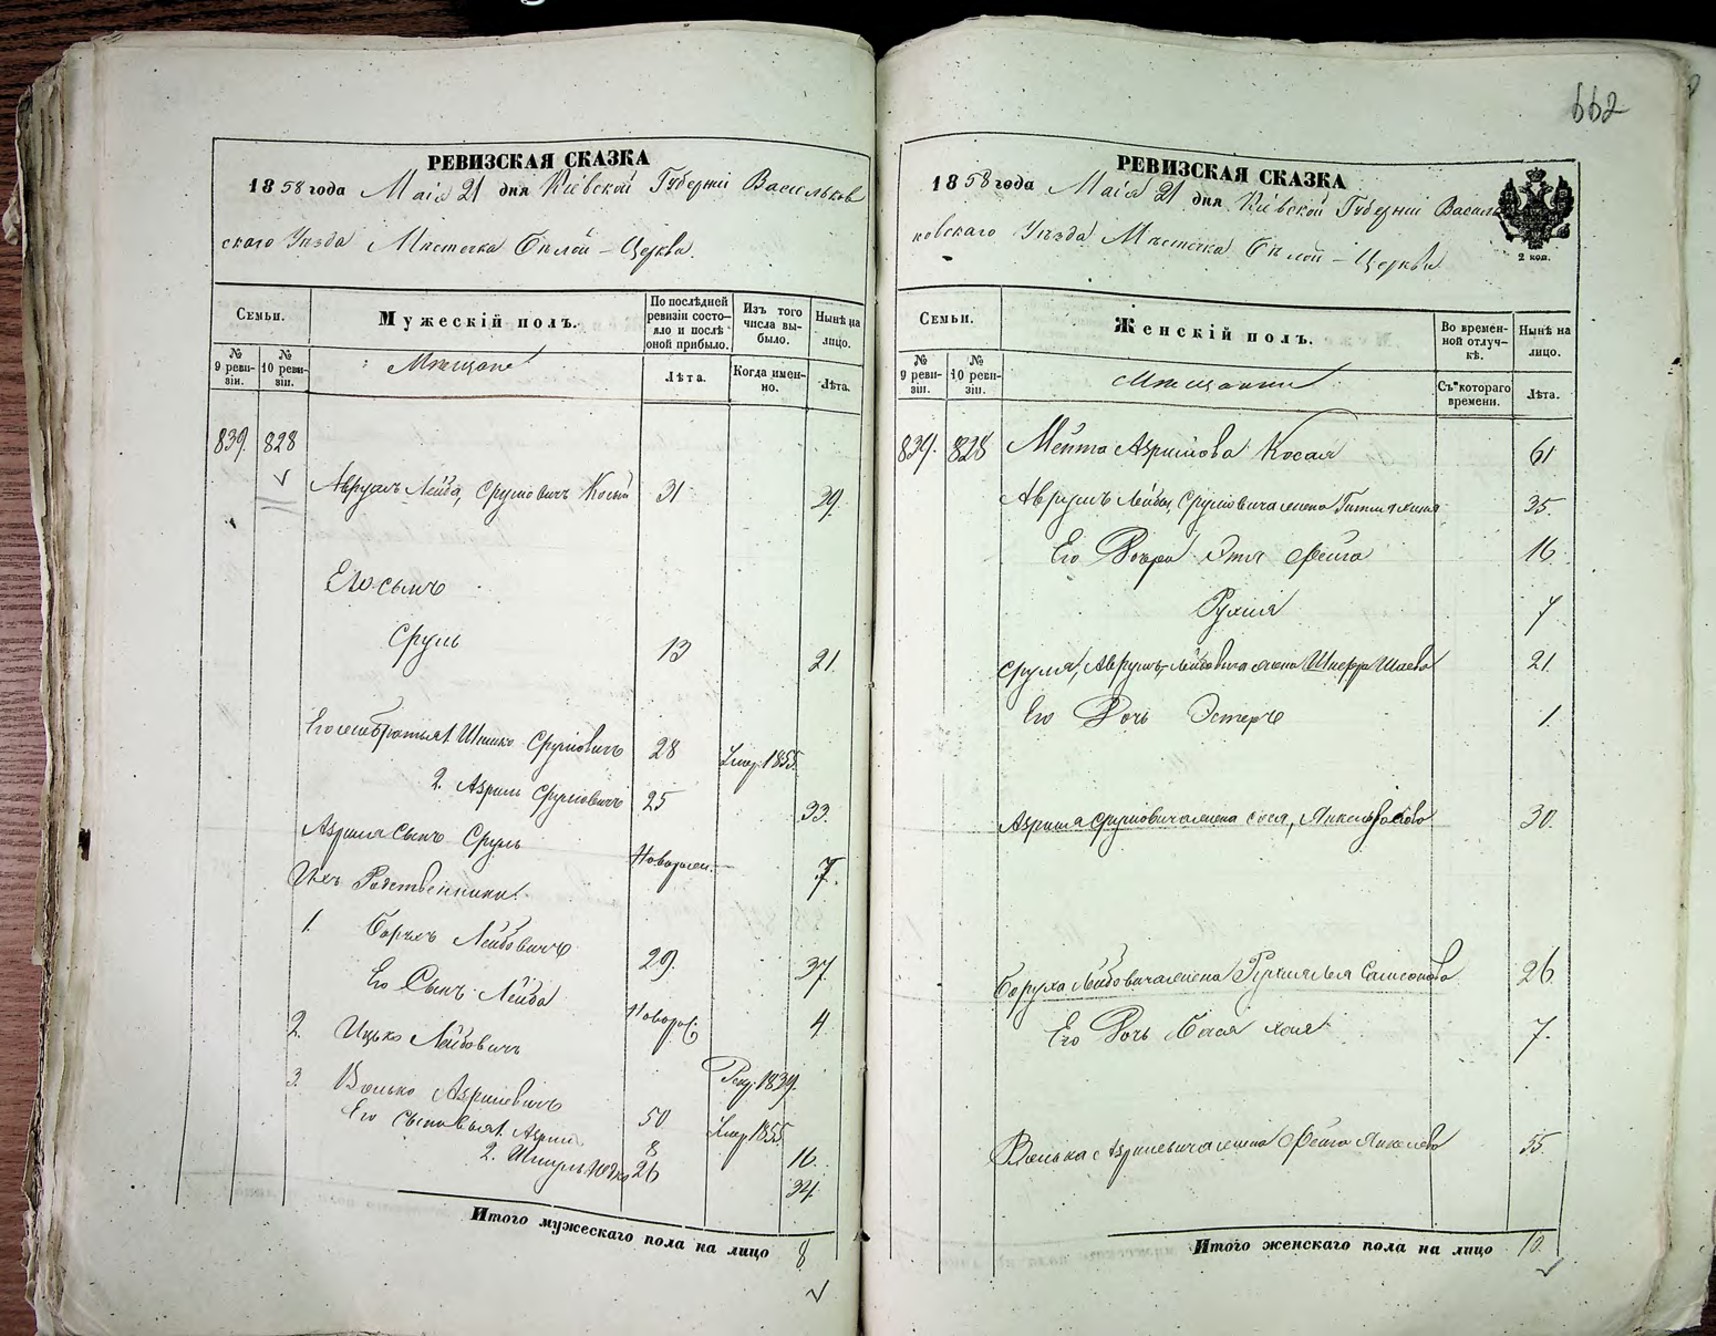 662
РЕВИЗСКАЯ СКАЗКА
1858 года Маія 21 дня Кіевской Губерніи Васильков
скаго Уѣзда Мѣстечка Бѣлой – Церкви.
Семьи.
Мужескій полъ.
По послѣдней ревизіи состояло и послѣ оной прибыло.
Изъ того числа выбыло.
Нынѣ на лицо.
№ 9 ревизіи.
№ 10 ревизіи.
Мѣщане
Лѣта.
Когда именно.
Лѣта.
839. 828
Аврумъ Лейба, Срулiовичъ Косый 31 39.
Его сынъ
Сруль 13 21.
Его братья 1. Шмико Срулiовичъ 28 Умер. 1855.
2. Азриль Срулiовичъ 25 33.
Азриля Сынъ Сруль Новорожден. 7.
Ихъ Родственники.
1. Борухъ Лейбовичъ 29. 37.
Его Сынъ Лейба Новорож 4.
2. Ицько Лейбовичъ Рекр. 1839.
3. Волько Азрилевичъ 50 Умер 1855
Его Сыновья 1. Азриль 8 16.
2. Шмуль 26 34.
Итого мужескаго пола на лицо 8
РЕВИЗСКАЯ СКАЗКА
1858 года Маія 21 дня Кіевской Губерніи Василь
ковскаго Уѣзда Мѣстечка Бѣлой – Церкви
2 коп.
Семьи.
Женскій полъ.
Во временной отлучкѣ.
Нынѣ на лицо.
№ 9 ревизіи.
№ 10 ревизіи.
Мѣщанки
Съ котораго времени.
Лѣта.
839. 828 Мейта Азрилiова Косая 61
Аврумъ Лейбы, Срулiовича жена 35.
Его Дочери Этя Фейга 16.
Рухля 7
Сруля, Аврумъ-Лейбовича жена Шаева 21.
Его Дочь Эстеръ 1.
Азриля Срулiовича жена Сося, 30.
Боруха Лейбовича жена Самсонова 26
Его Дочь Бася Хая 7.
Волька Азрилевича жена Фейга Янкелева 55.
Итого женскаго пола на лицо 10.